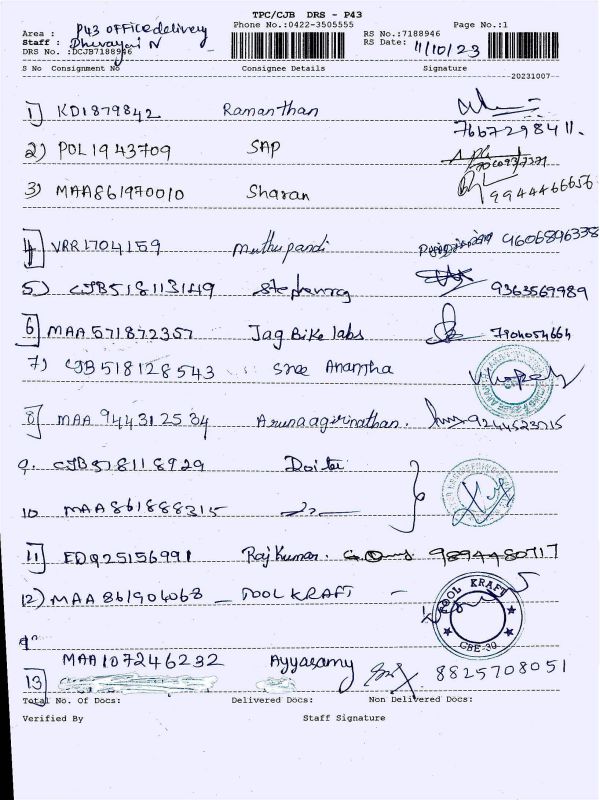 TPC/CJB DRS - P43
Phone No.:0422-3505555 Page No.:1
Area : P43 office delivery
RS No.:7188946
Staff : N
RS Date: 11/10/23
DRS No. :DCJB7188946
S No Consignment No Consignee Details Signature
20231007
1) KD1879842 Ramanthan
7667298411.
2) PDL1943709 SAP
3) MAA861970010 Sharan 9944466656
4 VRR1704159 muthupandi 9606896338
5) CJB518113149 9363569989
6) MAA571872357 Jag Bike labs 7904054664
7) CJB518128543 Sree Anantha
8) MAA944312504 Arunaagirinathan. 9244523015
9. CJB578118929 Doitai
10 MAA861888315
11 EDQ25156991 Rajkumar. 9894480717
12) MAA861904068 - TOOL KRAFT -
TOOL KRAFT
CBE-30
MAA107246232 Ayyasamy 8825708051
13
Total No. Of Docs: Delivered Docs: Non Delivered Docs:
Verified By Staff Signature